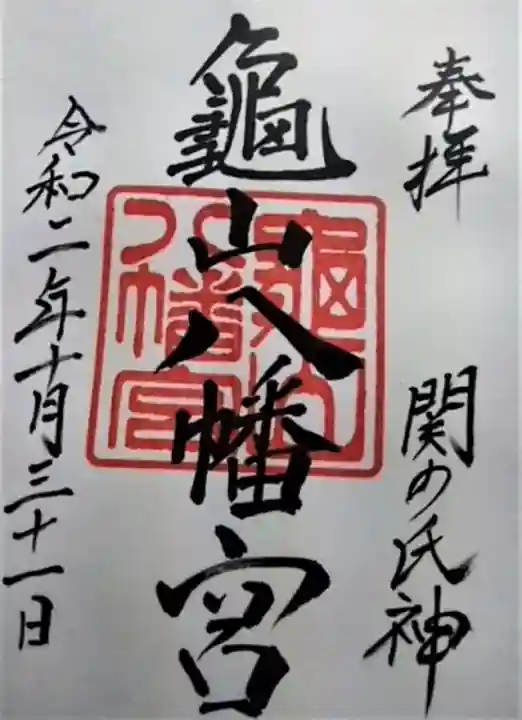 奉拝
関の氏神
龜山八幡宮
龜山八幡宮
令和二年十月三十一日